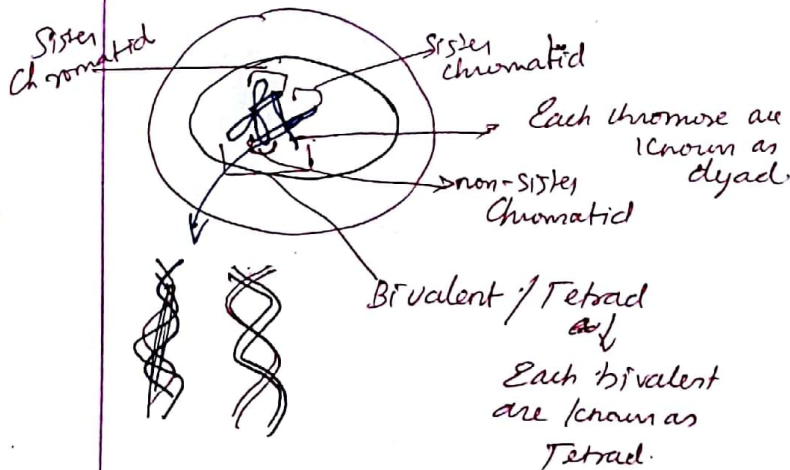 Sister
Chromatid
Sister
chromatid
Each chromose are
known as
dyad.
non-sister
Chromatid
Bivalent / Tetrad
Each bivalent
are known as
Tetrad.